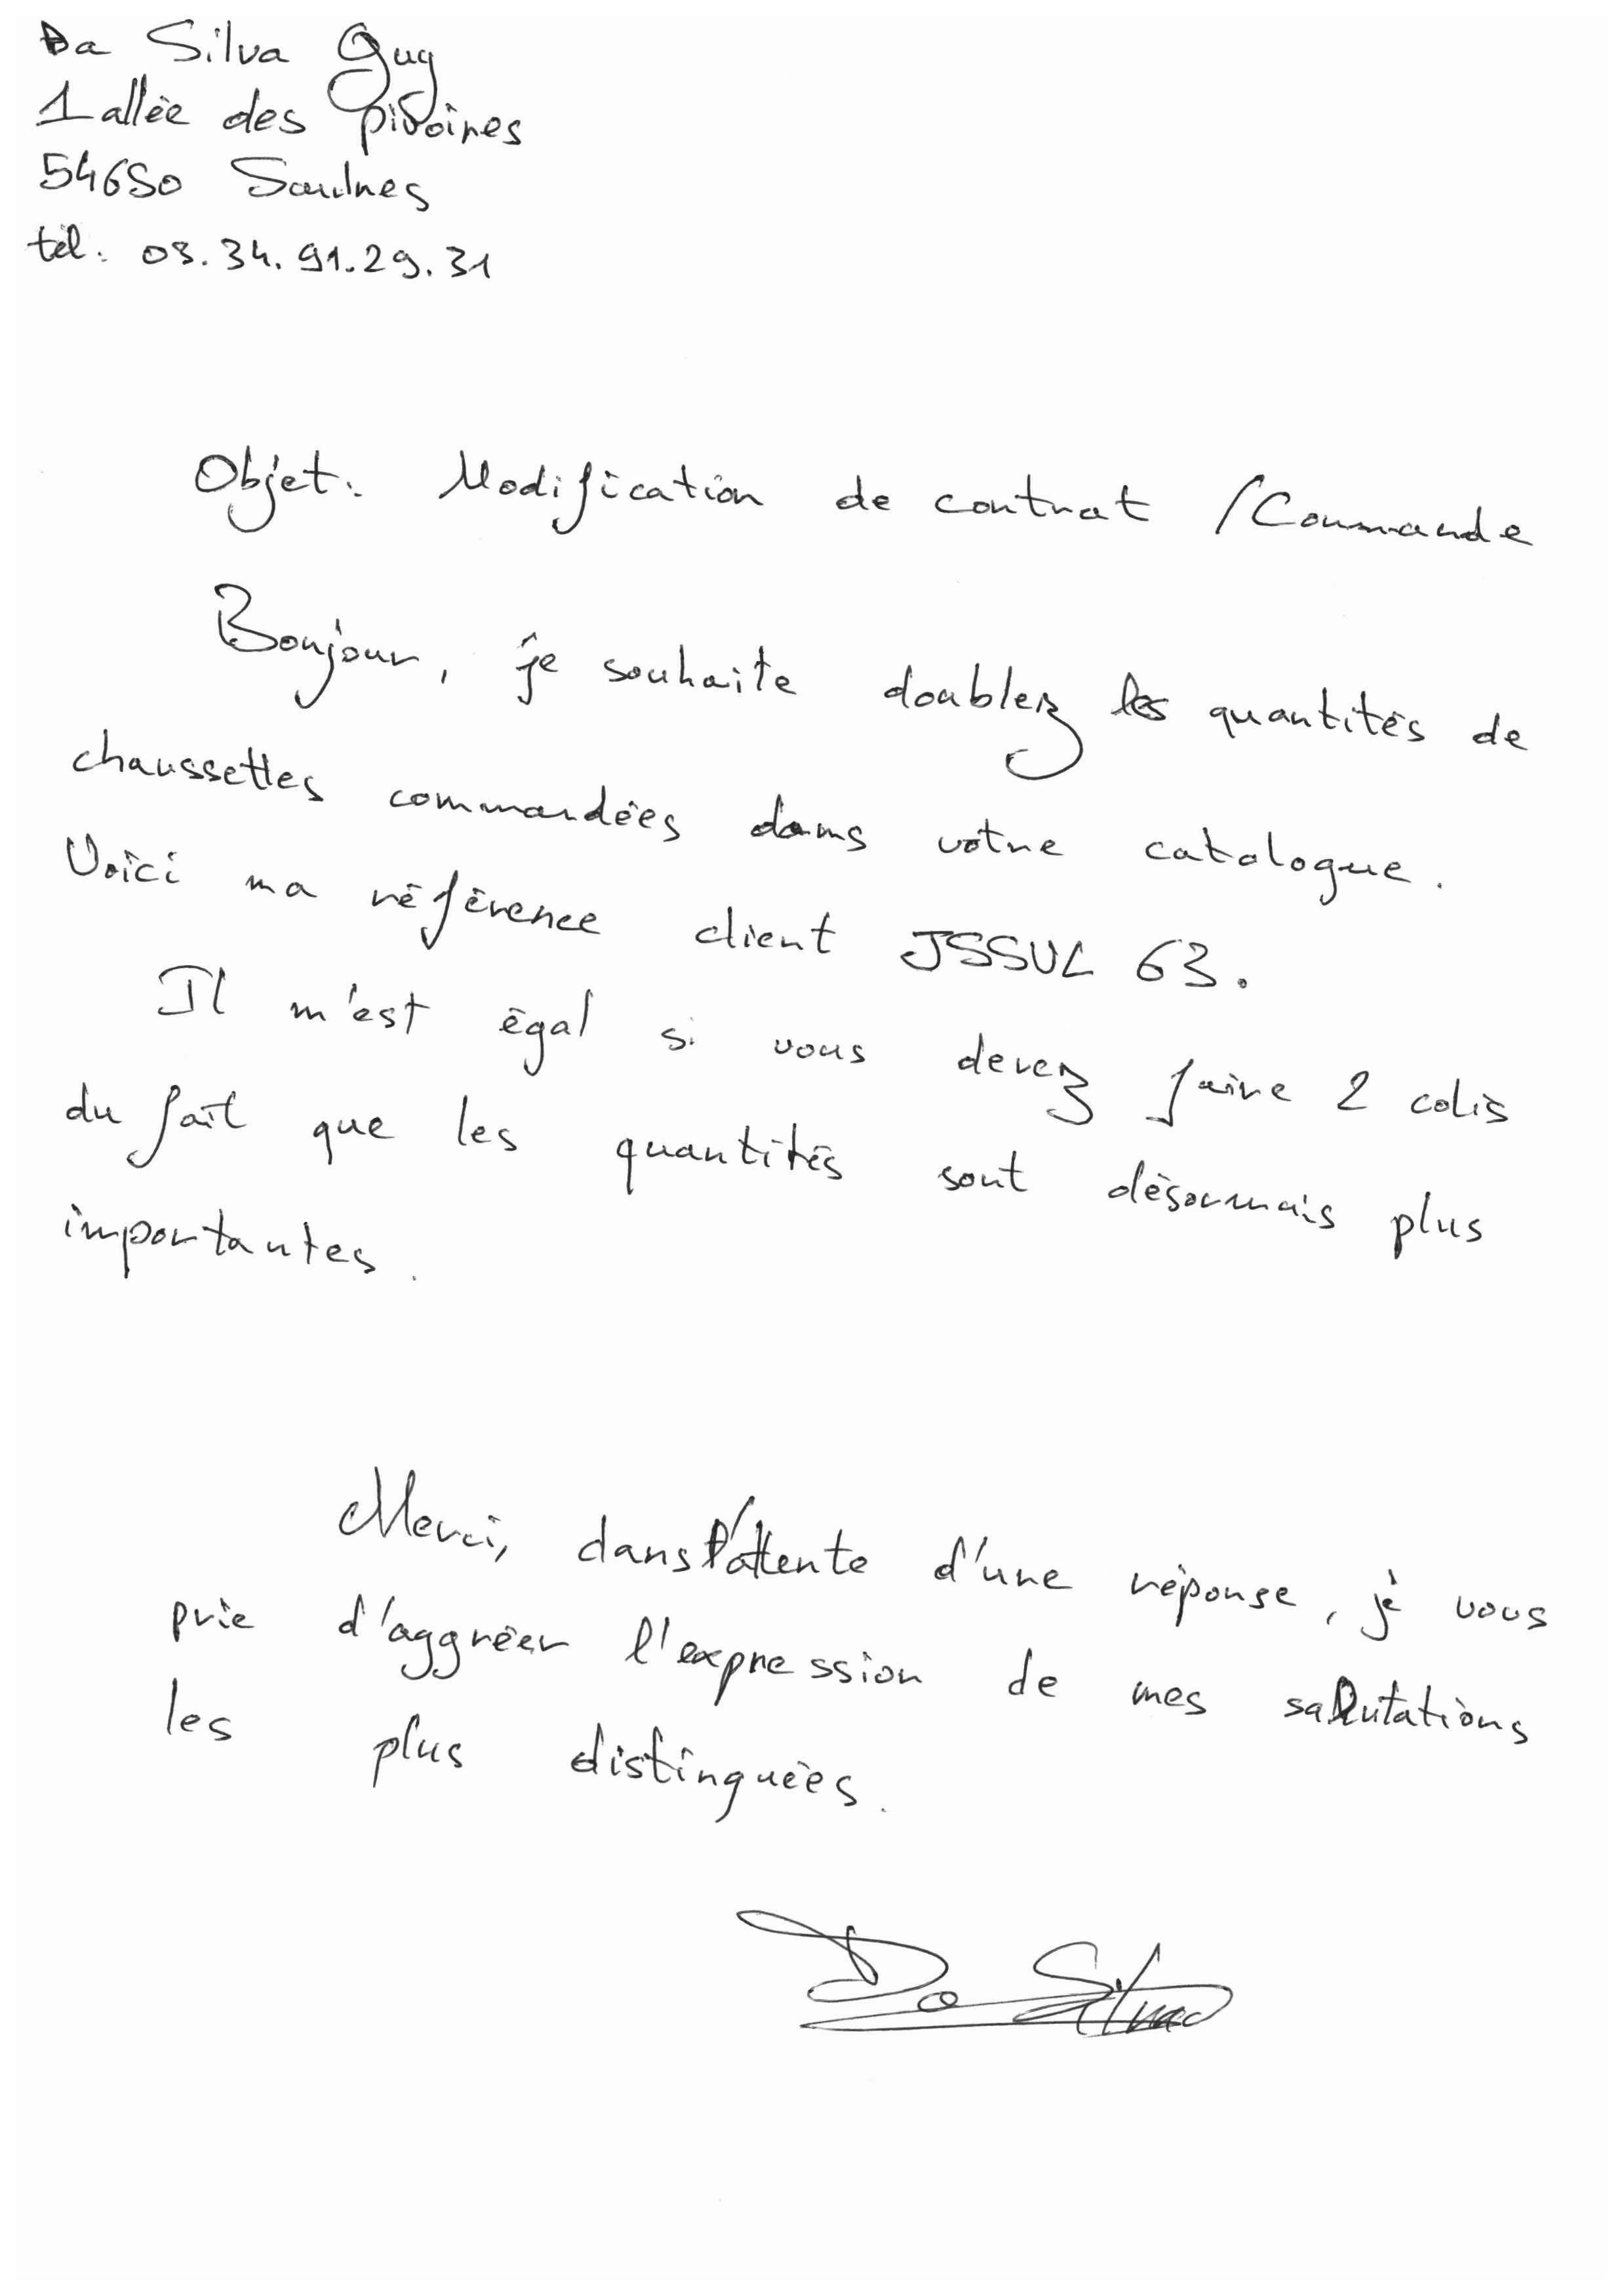 Da Silva Guy
1 allée des pivoines
54650 Saulnes
tél: 03.34.91.29.31
Objet: Modification de contrat / Commande
Bonjour, je souhaite doublez les quantités de
chaussettes commandées dans votre catalogue.
Voici ma référence client JSSUL 63.
Il m'est égal si vous devez faire 2 colis
du fait que les quantités sont désormais plus
importantes.
Merci, dans l'attente d'une réponse, je vous
prie d'aggréer l'expression de mes salutations
les plus distinguées.
Da Silva